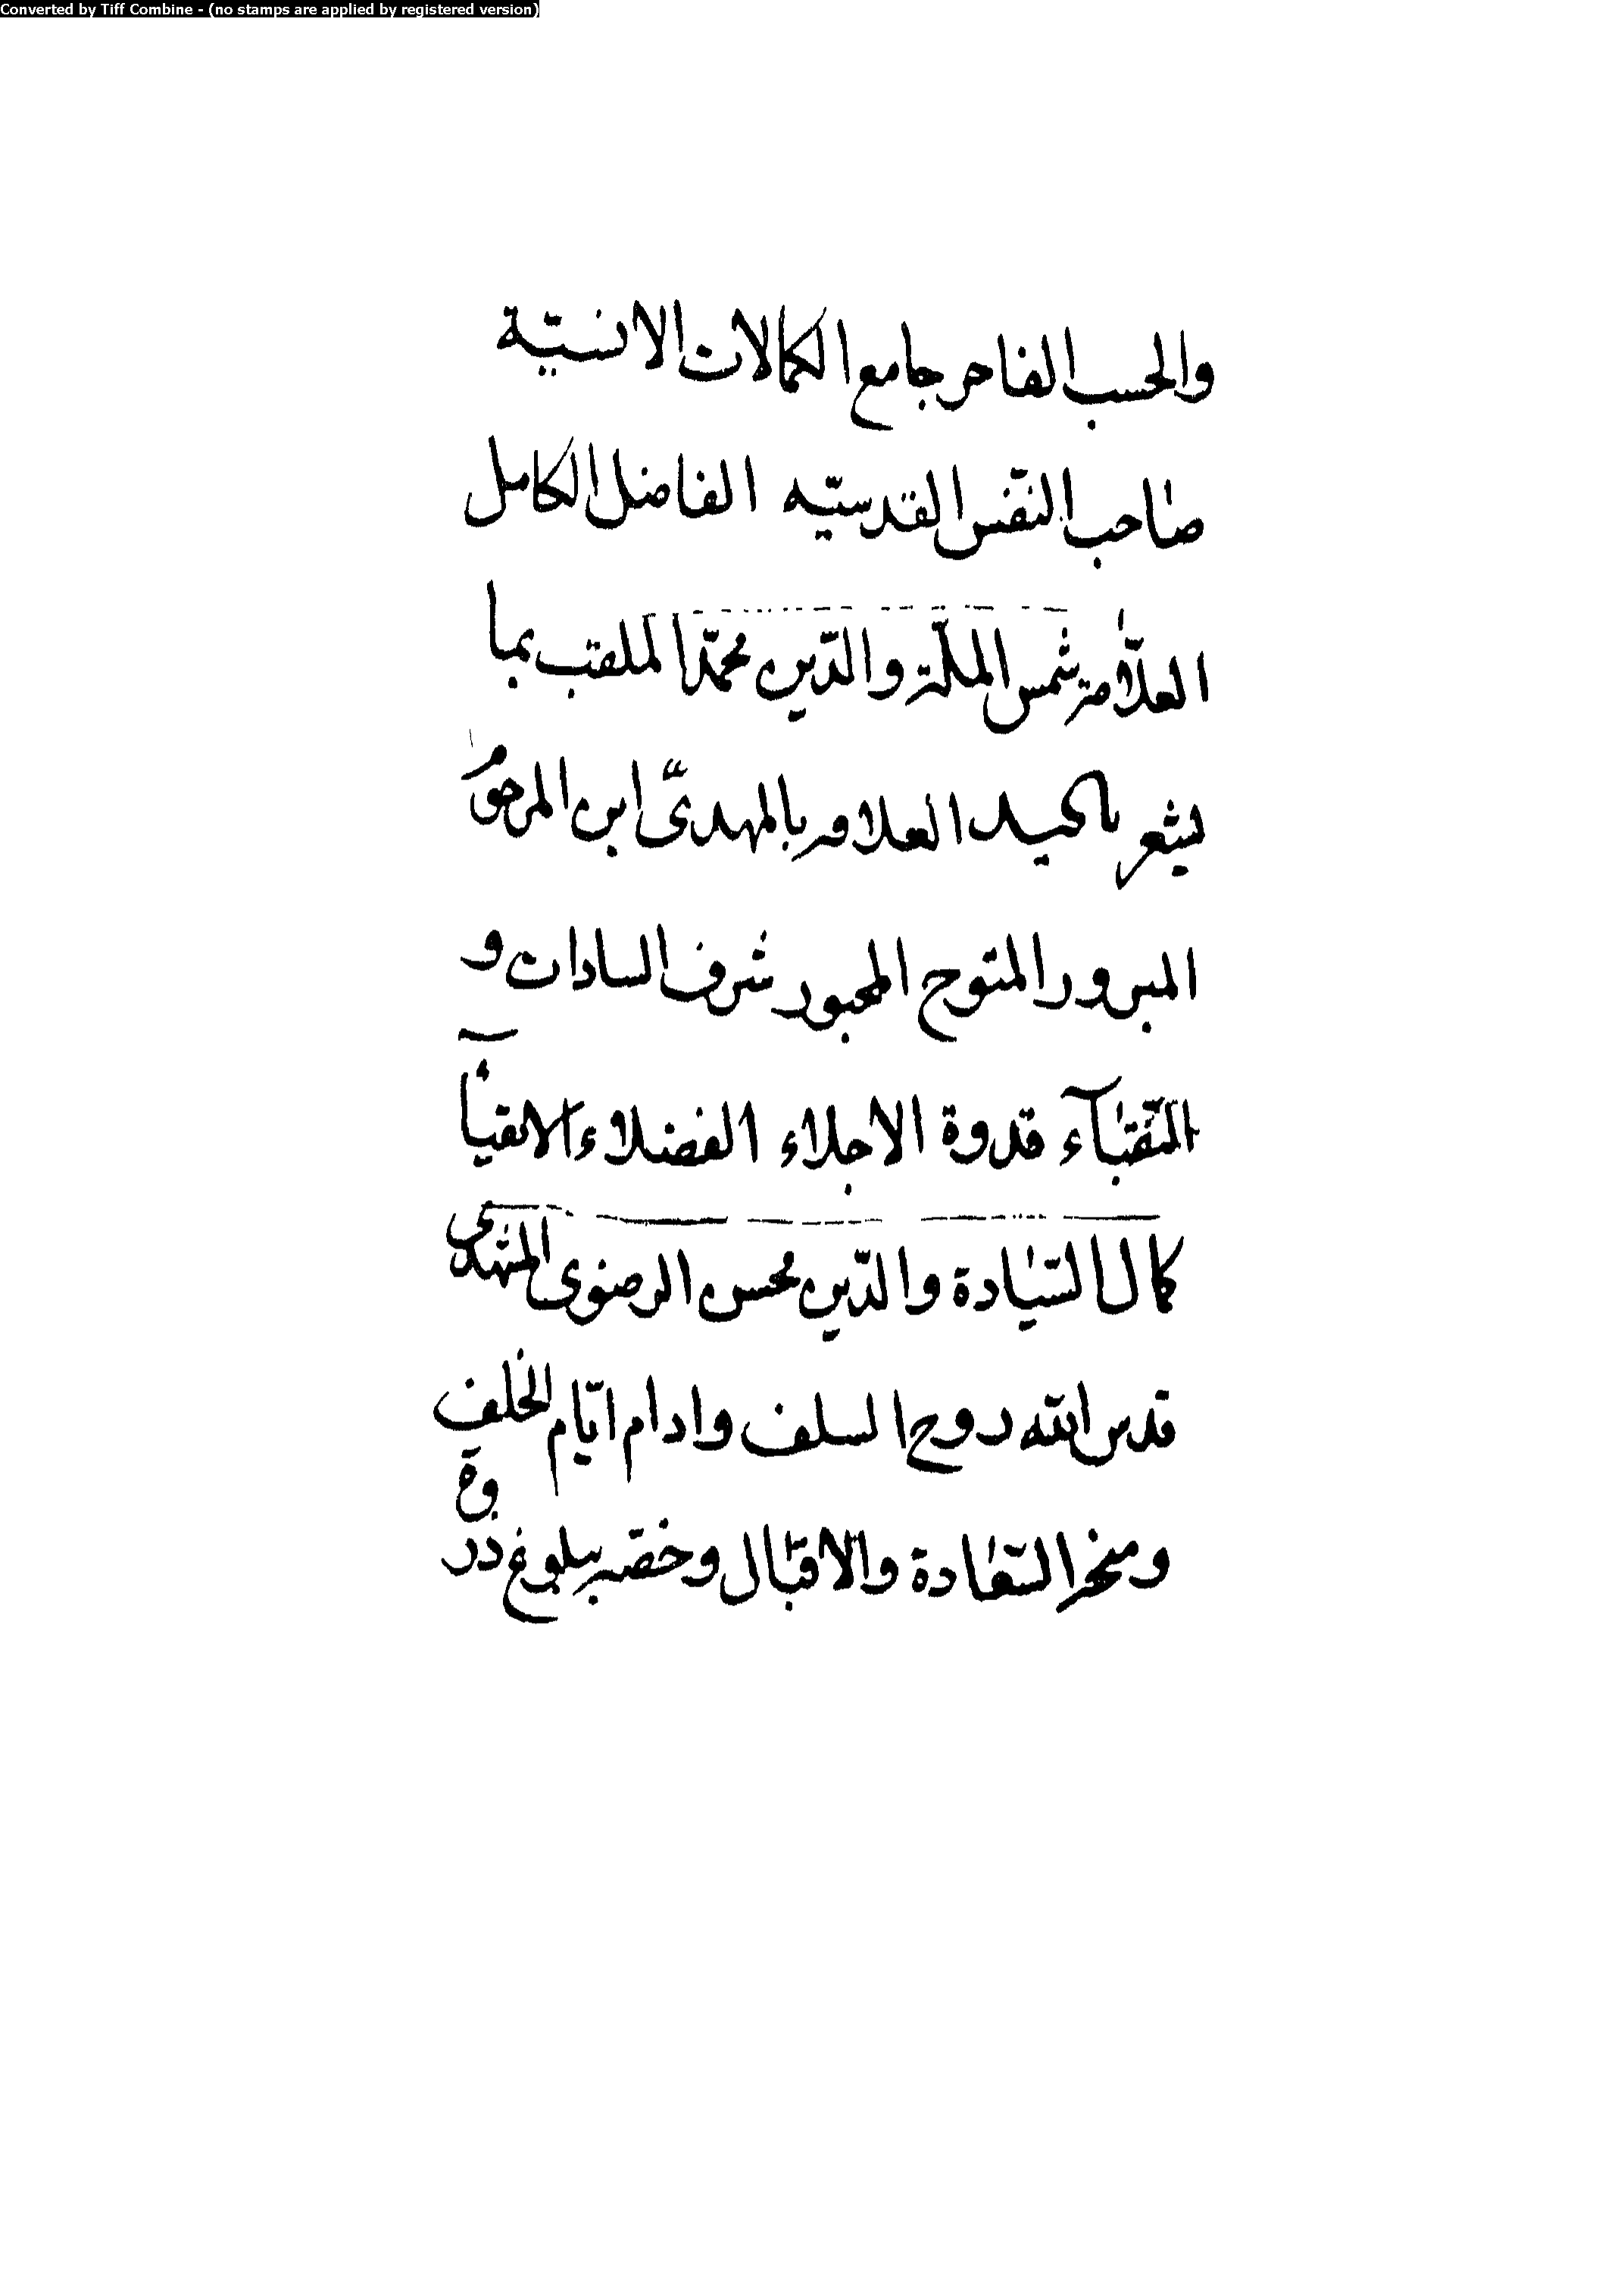 Converted by Tiff Combine - (no stamps are applied by registered version)
والحسب الفاخر جامع الكمالات الانسيّة
صاحب النفس القدسيّه الفاضل الكامل
العلّامة شمس الملّة والدّين محمّد الملقب بما
العلامه بالمهدىّ ابن المرحو
المبرور المتوج المحبور شرف السادات و
النّقبآء قدوة الاجلاء الفضلاء الاتقيآ
كمال السّيادة والدّين محسن الرضوى المشهدى
قدس الله روح السلف وادام ايّام الخلف
ومنحه السّعادة والاقبال وخصّه ببلوغ ذروة